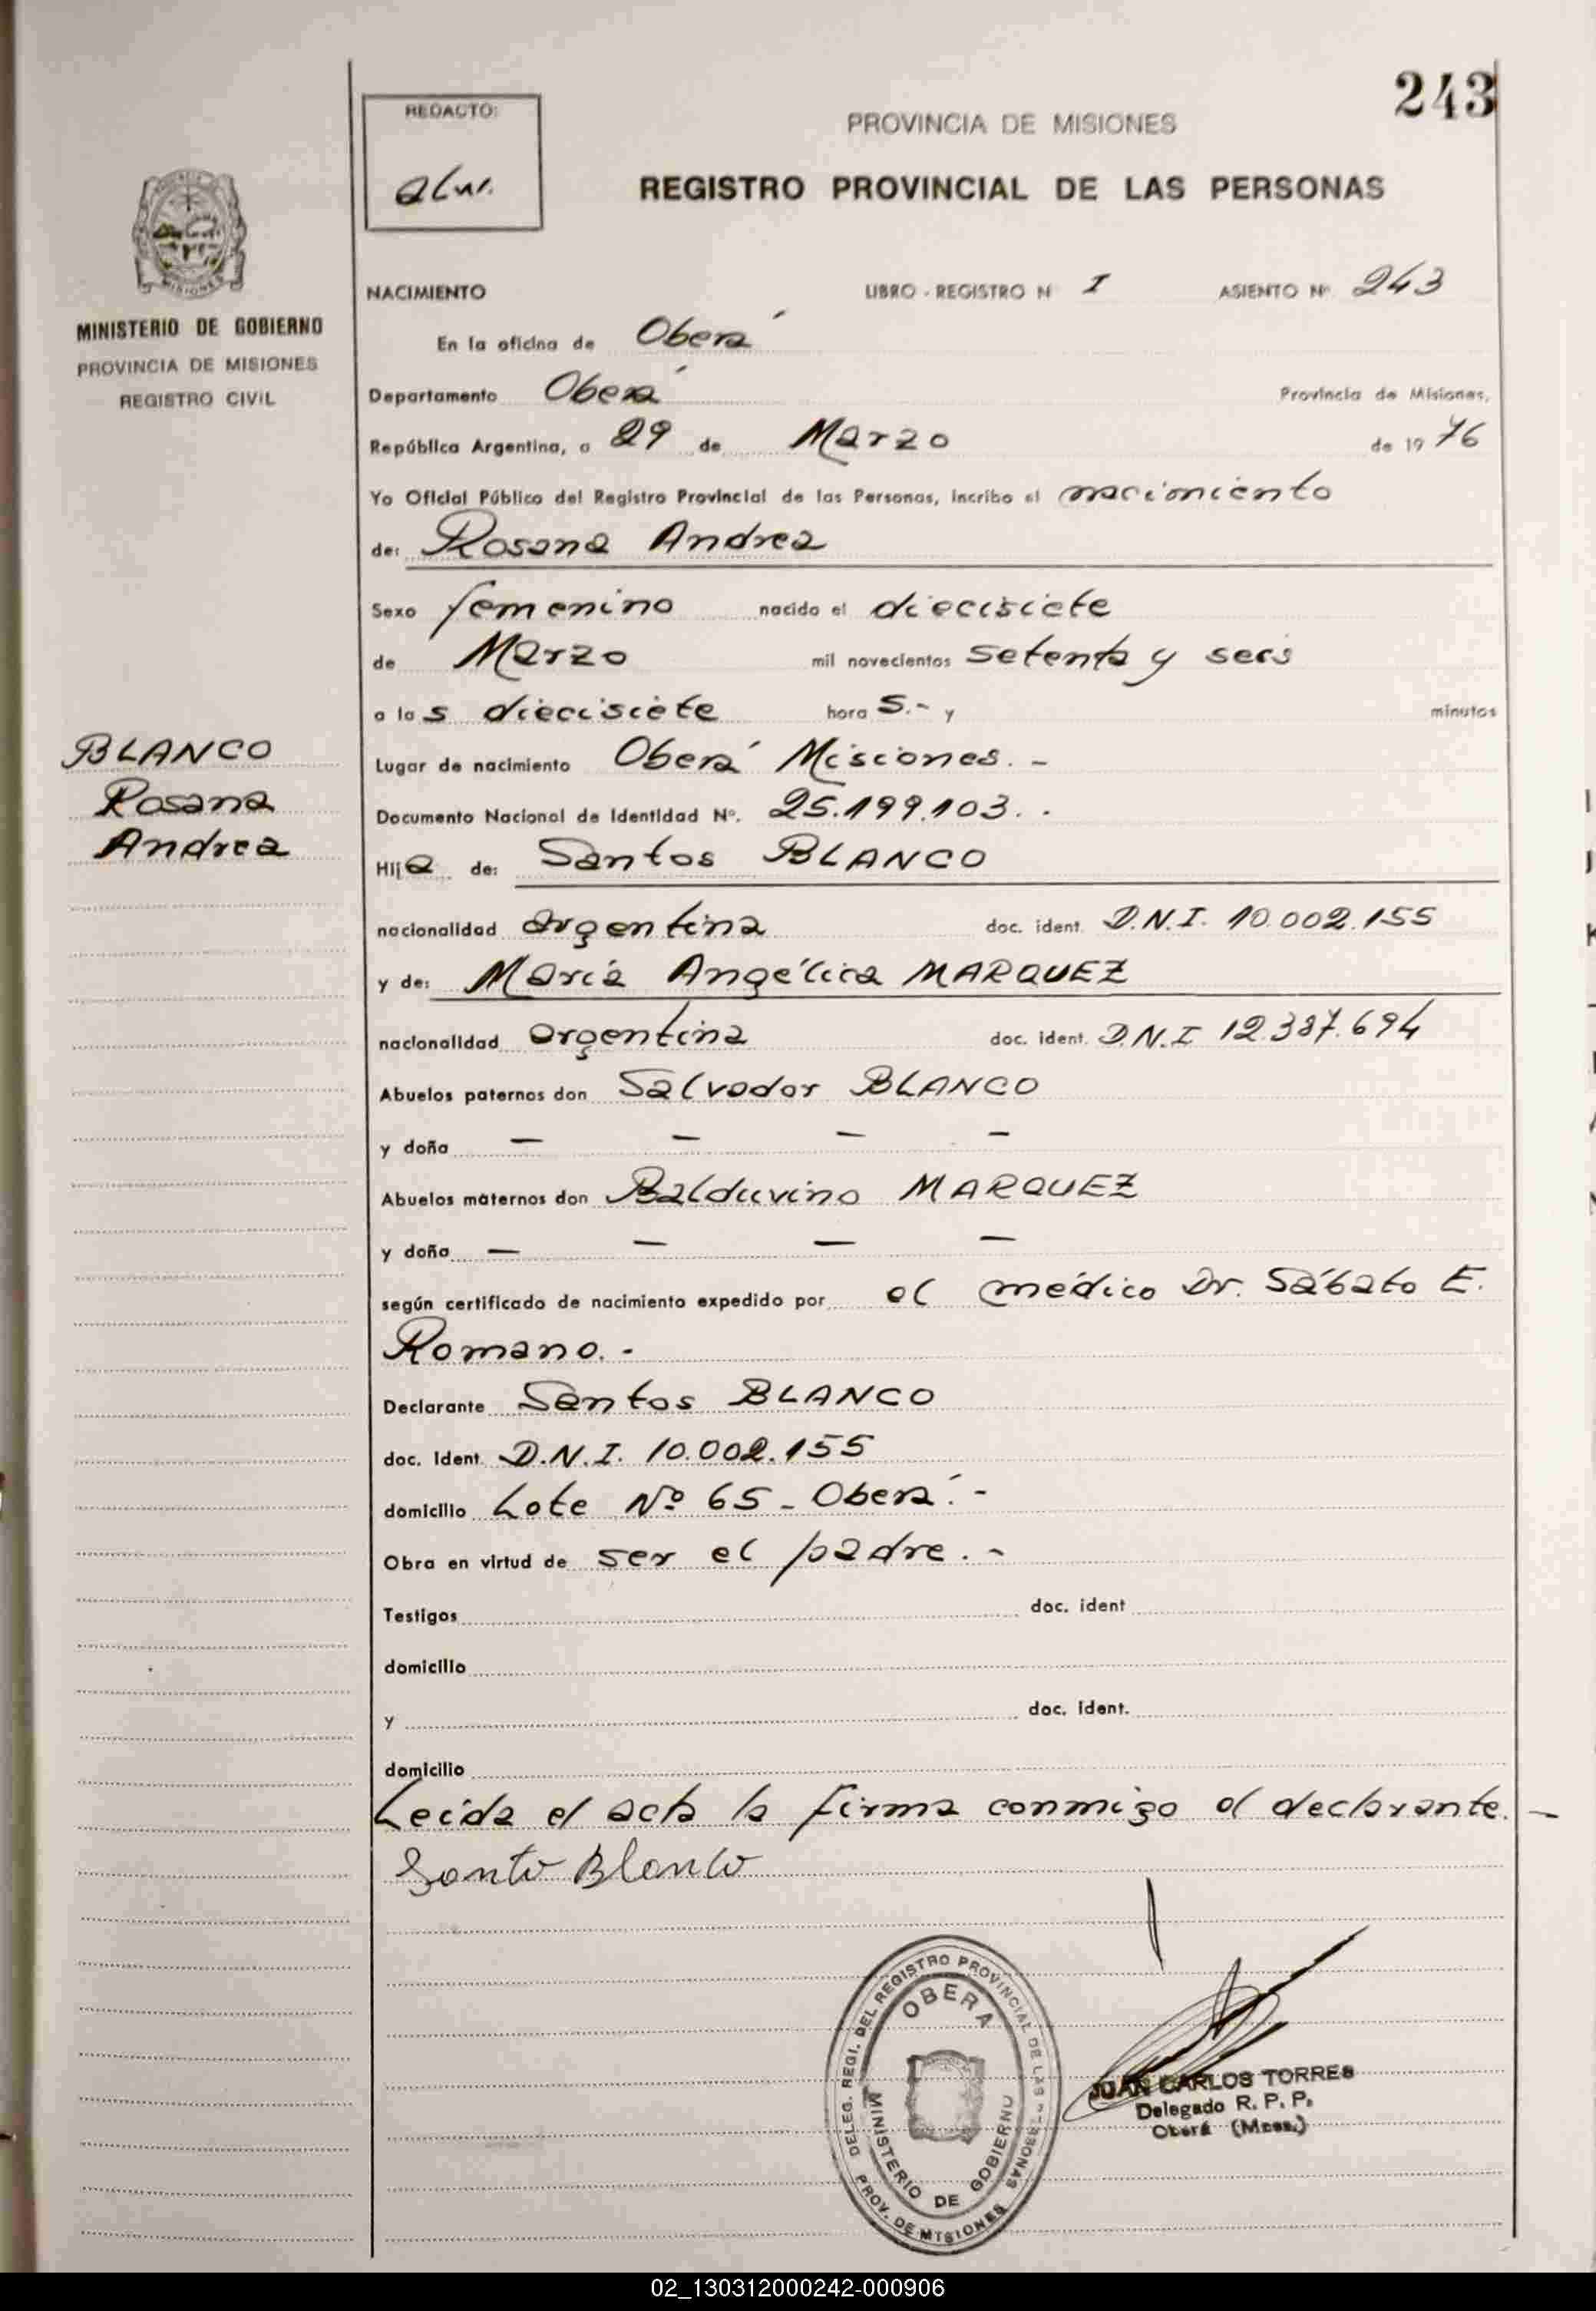 243
REDACTO:
PROVINCIA DE MISIONES
REGISTRO PROVINCIAL DE LAS PERSONAS
MINISTERIO DE GOBIERNO
PROVINCIA DE MISIONES
REGISTRO CIVIL
NACIMIENTO LIBRO - REGISTRO N I ASIENTO Nº 243
En la oficina de Oberá
Departamento Oberá Provincia de Misiones,
República Argentina, a 29 de Marzo de 19 76
Yo Oficial Público del Registro Provincial de las Personas, incribo el nacimiento
de: Rosana Andrea
Sexo femenino nacido el diecisiete
de Marzo mil novecientos setenta y seis
a las diecisiete hora s.- y minutos
BLANCO
Rosana
Andrea
Lugar de nacimiento Oberá Misiones. -
Documento Nacional de Identidad Nº. 25.199.103. -
Hija de: Santos BLANCO
nacionalidad argentina doc. ident. D.N.I. 10.002.155
y de: María Angélica MARQUEZ
nacionalidad argentina doc. ident. D.N.I 12.387.694
Abuelos paternos don Salvador BLANCO
y doña — — — —
Abuelos maternos don Balduvino MARQUEZ
y doña — — — —
según certificado de nacimiento expedido por el médico Dr. Sábato E.
Romano. -
Declarante Santos BLANCO
doc. Ident. D.N.I. 10.002.155
domicilio Lote Nº 65 - Oberá. -
Obra en virtud de ser el padre. -
Testigos doc. ident
domicilio
y doc. ident.
domicilio
Leida el acta la firma conmigo el declarante. -
Santo Blanco
DELEG. REGI. DEL REGISTRO PROVINCIAL DE LAS PERSONAS
OBERA
MINISTERIO DE GOBIERNO
PROV. DE MISIONES
JUAN CARLOS TORRES
Delegado R. P. P.
Oberá (Mnes.)
02_130312000242-000906